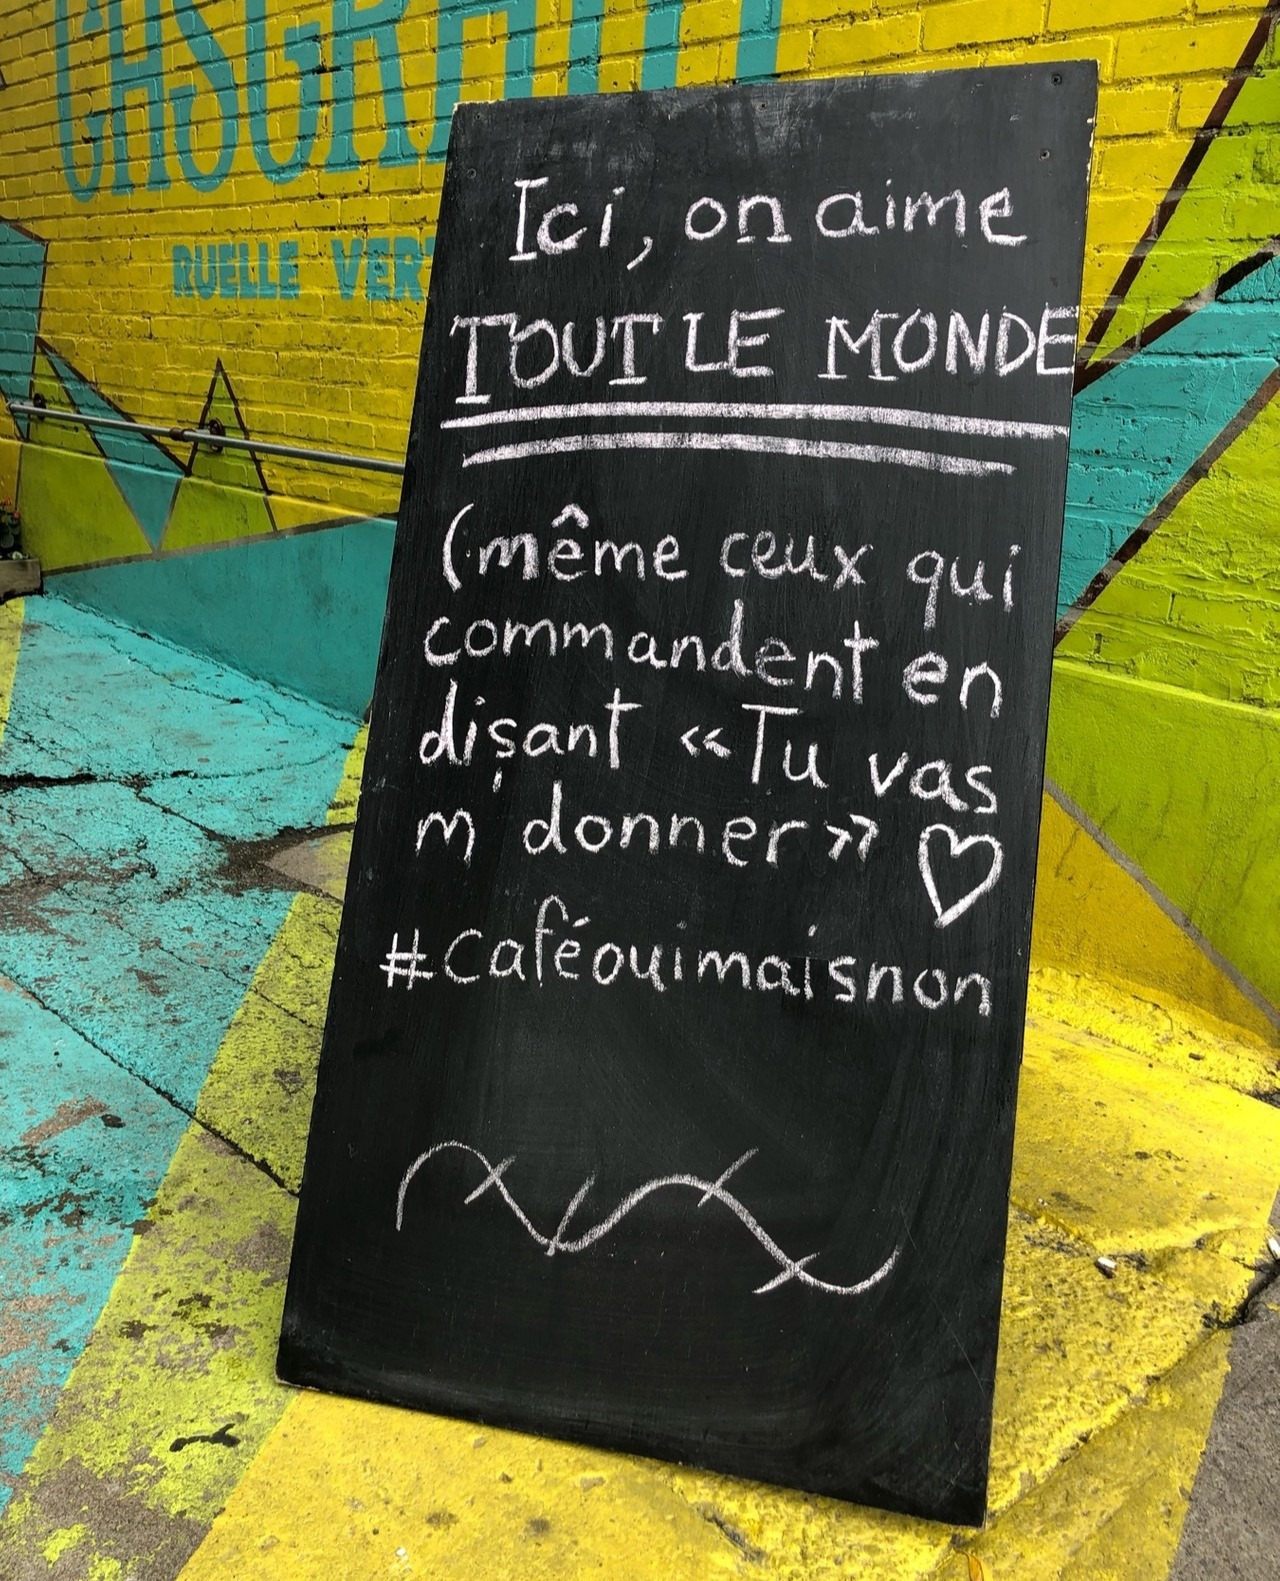 RUELLE
Ici, on aime
TOUT LE MONDE
(même ceux qui
commandent en
disant «Tu vas
m donner» ♡
#caféouimaisnon